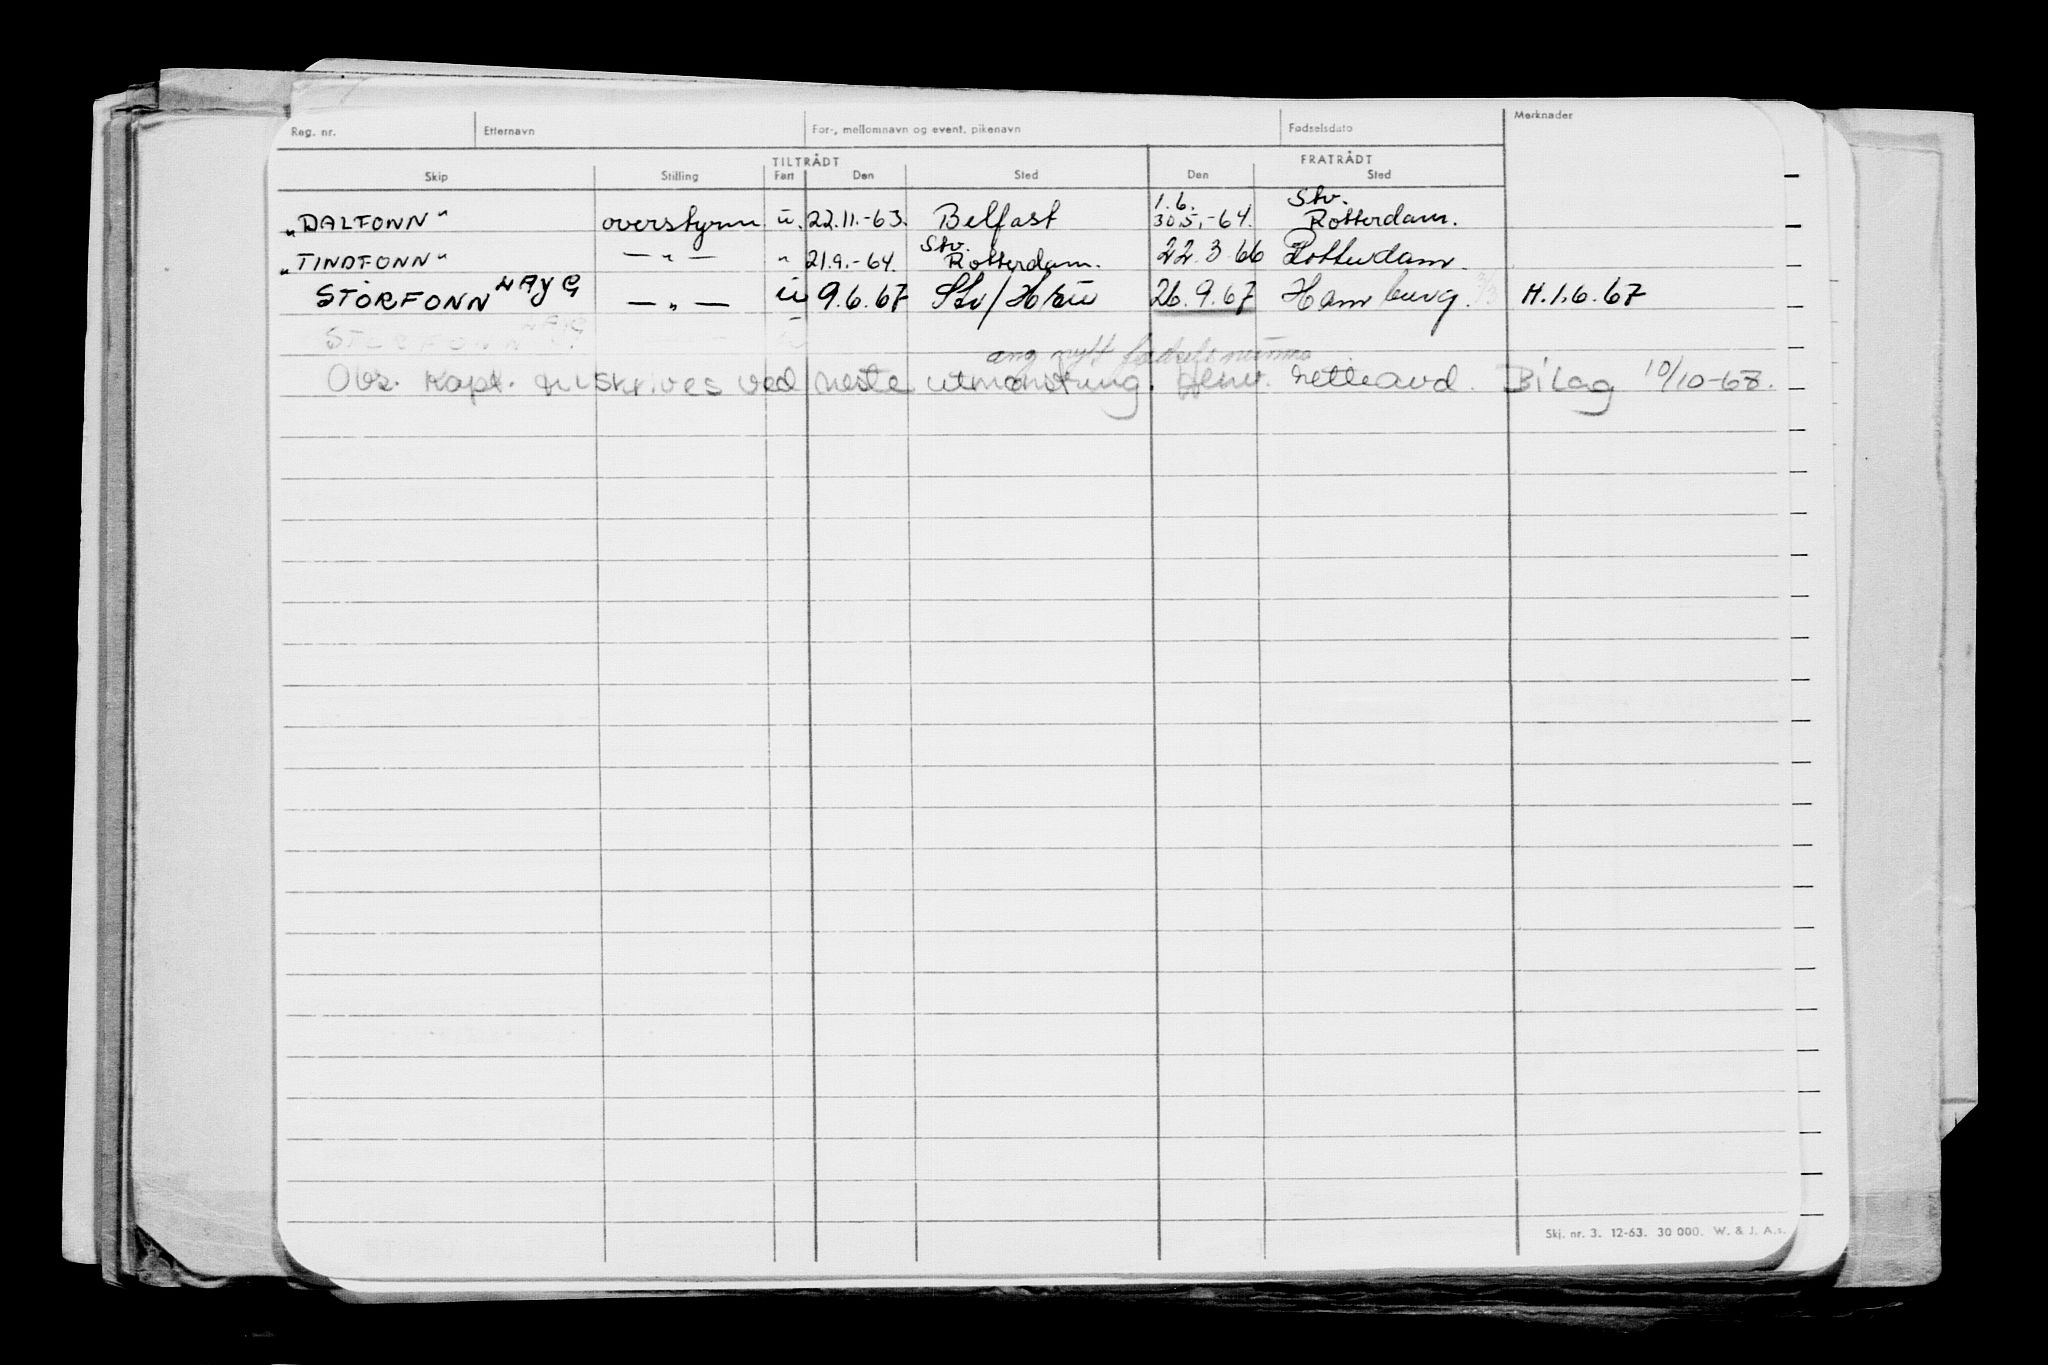 Reg. nr. Etternavn For-, mellomnavn og event. pikenavn Fødselsdato Merknader
TILTRÅDT FRATRÅDT
Skip Stilling Fart Den Sted Den Sted
1.6. Stv.
"DALFONN" overstyrm. u. 22.11.-63. Belfast 30.5.-64. Rotterdam.
Stv.
"TINDFONN" — " — " 21.9.-64. Rotterdam. 22.3.66 Rotterdam.
STORFONN LAYG — " — u 9.6.67 Stv/ 26.9.67 Hamburg. H.1.6.67
STORFONN
ang nytt fødselsnummer
Obs. Kapt. tilskrives ved neste utmønstring. rulleavd. Bilag 10/10-68.
Skj. nr. 3. 12-63. 30 000. W. & J. A.s.